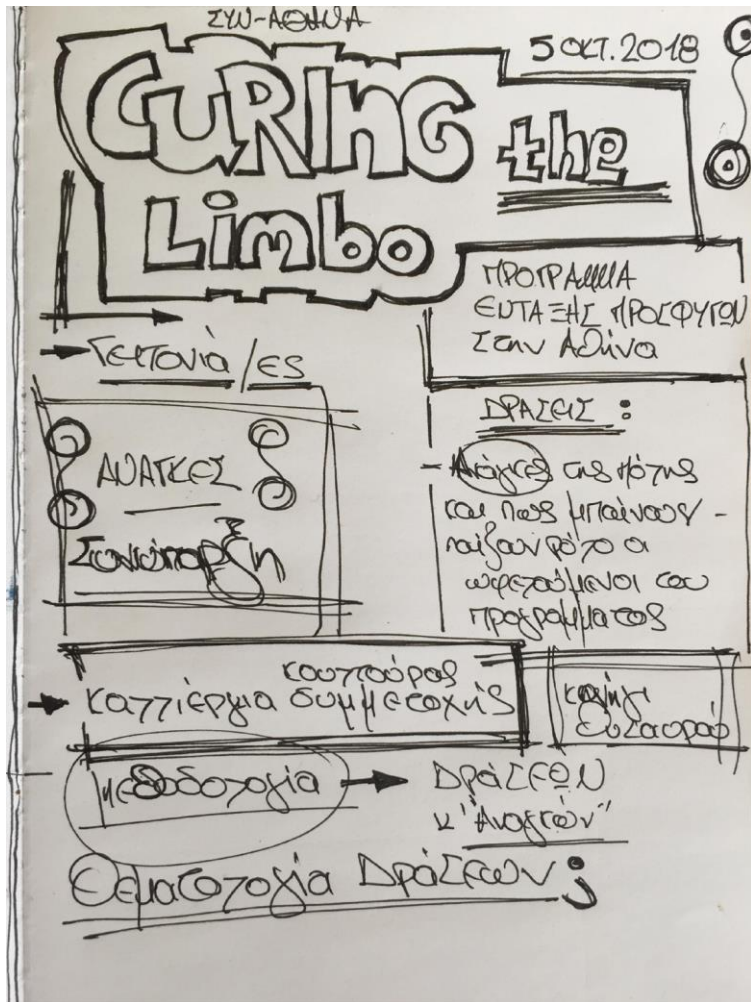 ΣΥΝ-ΑΘΗΝΑ
5 ΟΚΤ. 2018
CURING the
Limbo
ΠΡΟΓΡΑΜΜΑ
ΕΝΤΑΞΗΣ ΠΡΟΣΦΥΓΩΝ
Στην Αθήνα
Γειτονιά/ES
ΑΝΑΓΚΕΣ
Συνύπαρξη
ΔΡΑΣΕΙΣ :
- Ανάγκες της πόλης
και πως μπαίνουν -
παίζουν ρόλο οι
ωφελούμενοι του
προγράμματος
κουλτούρας
καλλιέργεια συμμετοχής
κυνήγι
θησαυρού
μεθοδολογία → ΔράΣΕΩΝ
κ "Αναγκών"
Θεματολογία ΔράΣεων ;